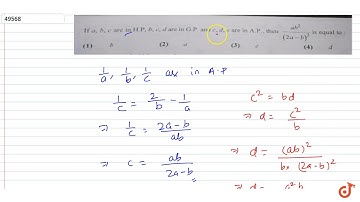 49568
If a, b, c are in H.P, b, c, d are in G.P and c, d, e are in A.P, than ab²/(2a-b)² is equal to :
(1) b (2) a (3) c (4) d
1/a, 1/b, 1/c are in A.P
1/c = 2/b - 1/a
⇒ 1/c = (2a-b)/ab
⇒ c = ab/(2a-b)
c² = bd
⇒ d = c²/b
⇒ d = (ab)²/(b × (2a-b)²)